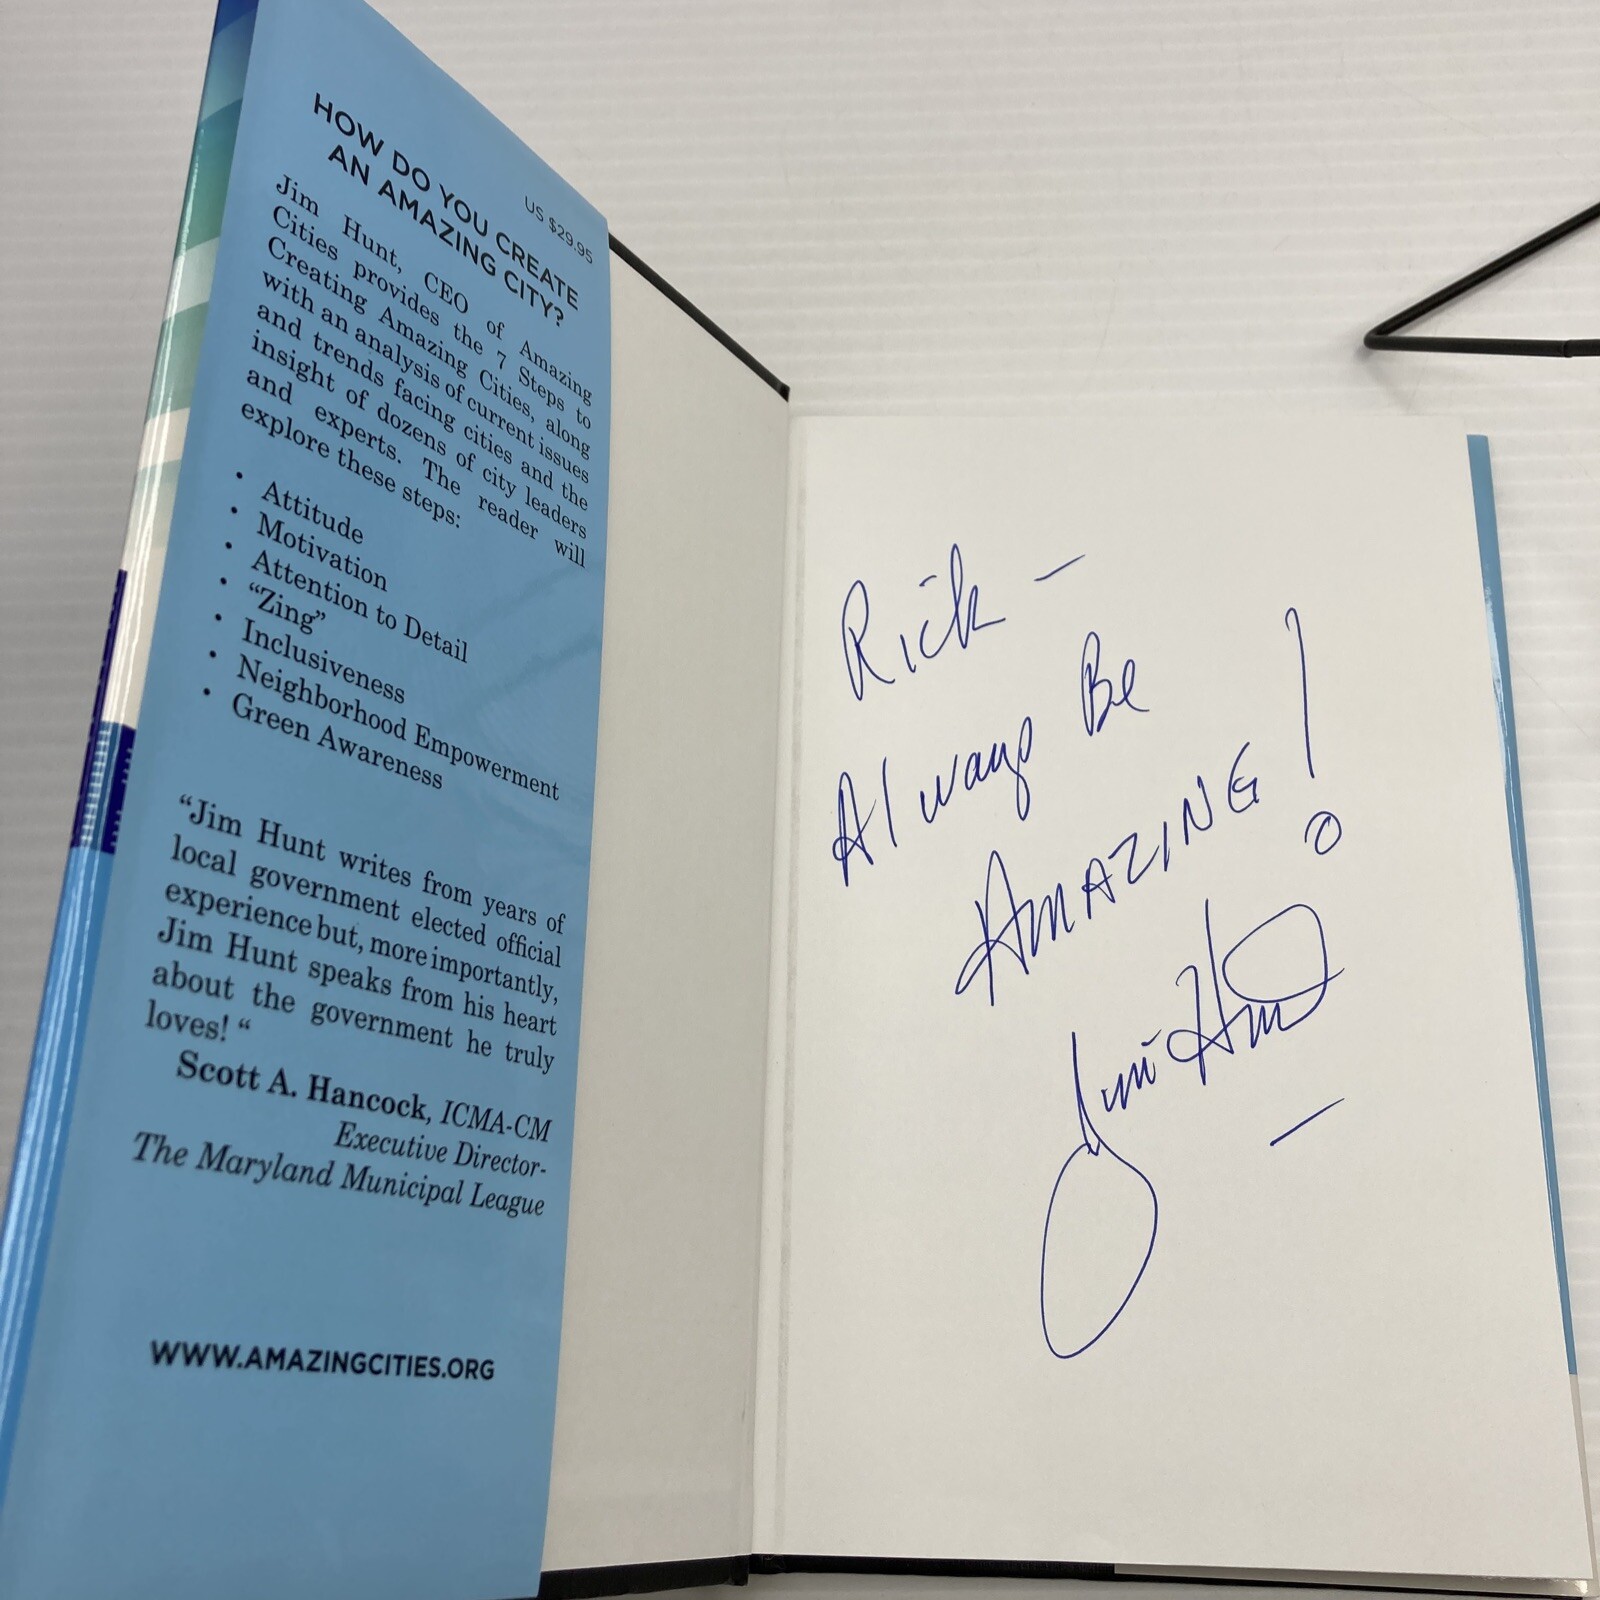 US $29.95
HOW DO YOU CREATE
AN AMAZING CITY?
Jim Hunt, CEO of Amazing
Cities provides the 7 Steps to
Creating Amazing Cities, along
with an analysis of current issues
and trends facing cities and the
insight of dozens of city leaders
and experts. The reader will
explore these steps:
• Attitude
• Motivation
• Attention to Detail
• “Zing”
• Inclusiveness
• Neighborhood Empowerment
• Green Awareness
“Jim Hunt writes from years of
local government elected official
experience but, more importantly,
Jim Hunt speaks from his heart
about the government he truly
loves! “
Scott A. Hancock, ICMA-CM
Executive Director-
The Maryland Municipal League
WWW.AMAZINGCITIES.ORG
Rick –
Always Be
AMAZING!
Jim Hunt
–